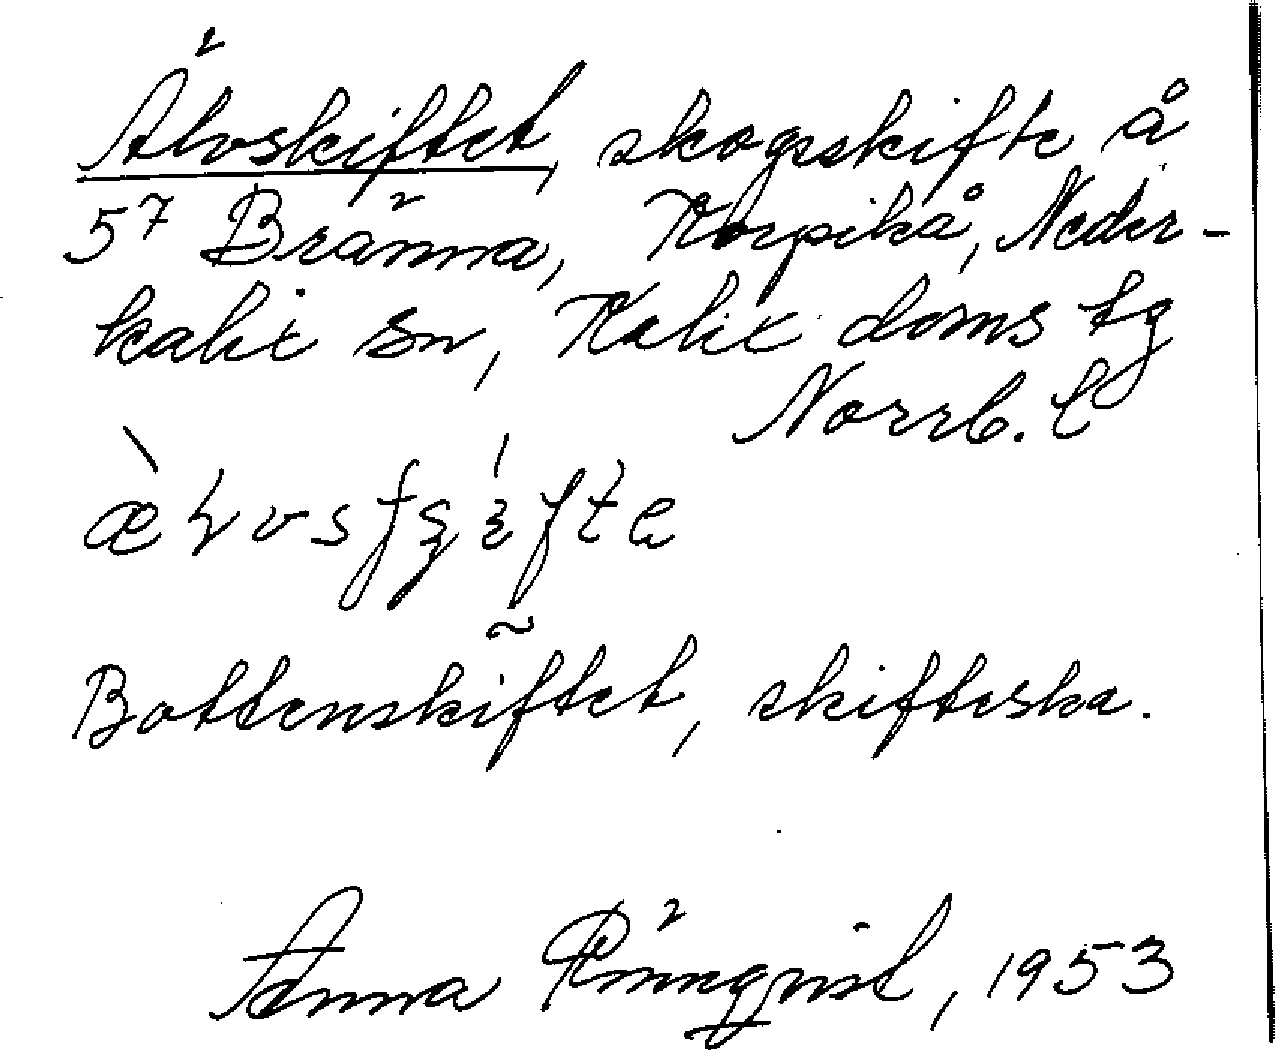 Älvskiftet, skogsskifte å
5⁷ Bränna, Korpikå, Neder-
kalix sn, Kalix doms tg
Norrb. l
Bottenskiftet, skifteska.
Anna Rönnqvist, 1953